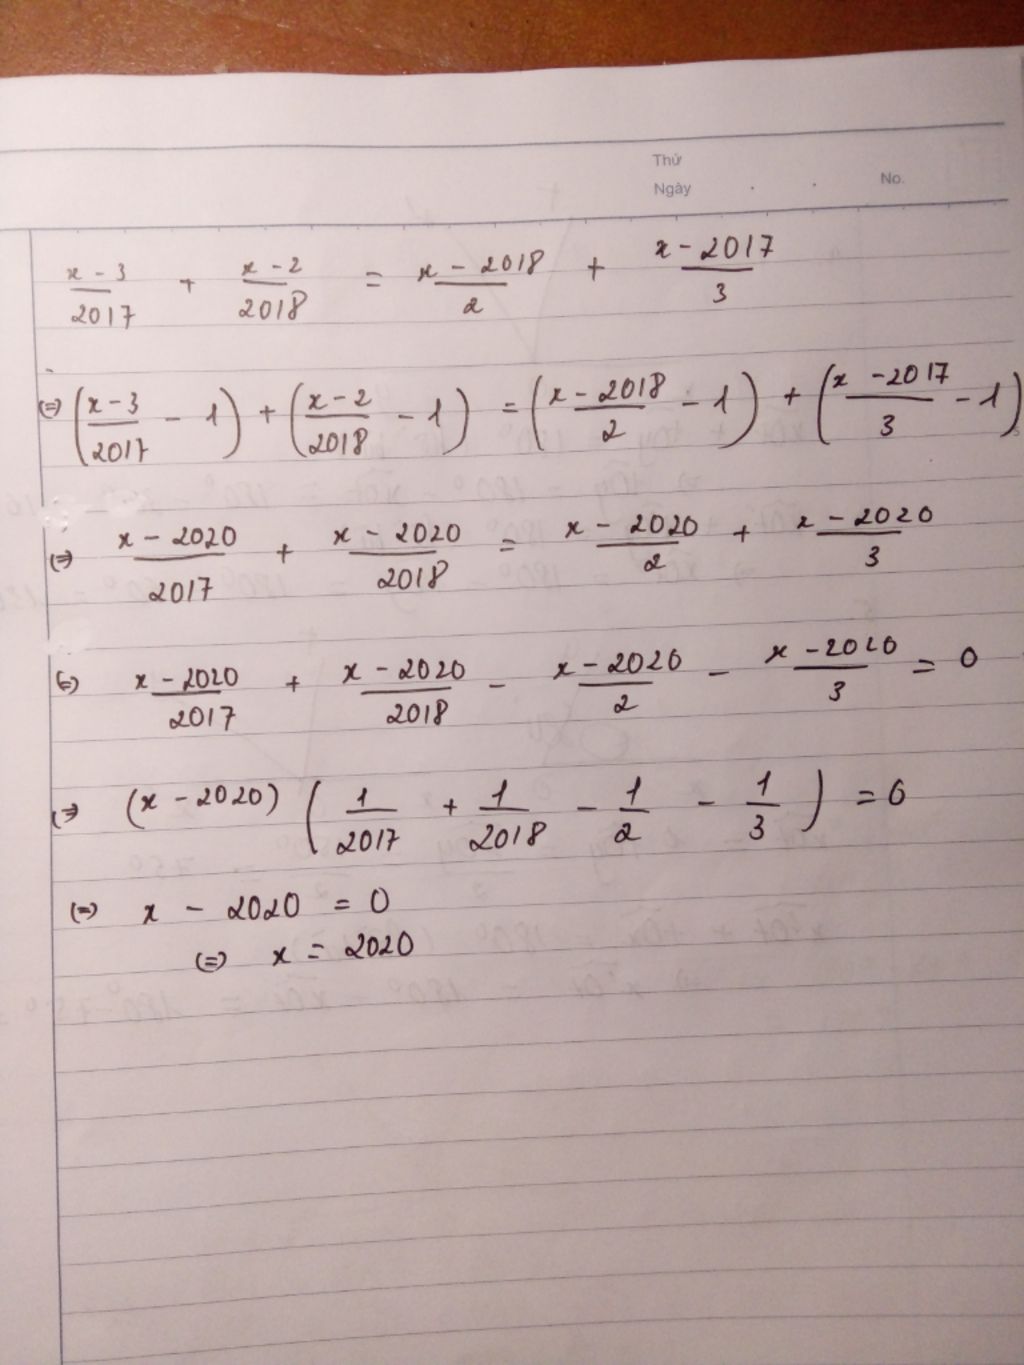 Thứ
Ngày . . No.
x - 3/2017 + x - 2/2018 = x - 2018/2 + x - 2017/3
(=) (x - 3/2017 - 1) + (x - 2/2018 - 1) = (x - 2018/2 - 1) + (x - 2017/3 - 1)
(=) x - 2020/2017 + x - 2020/2018 = x - 2020/2 + x - 2020/3
(=) x - 2020/2017 + x - 2020/2018 - x - 2020/2 - x - 2020/3 = 0
(=) (x - 2020) (1/2017 + 1/2018 - 1/2 - 1/3) = 0
(=) x - 2020 = 0
(=) x = 2020